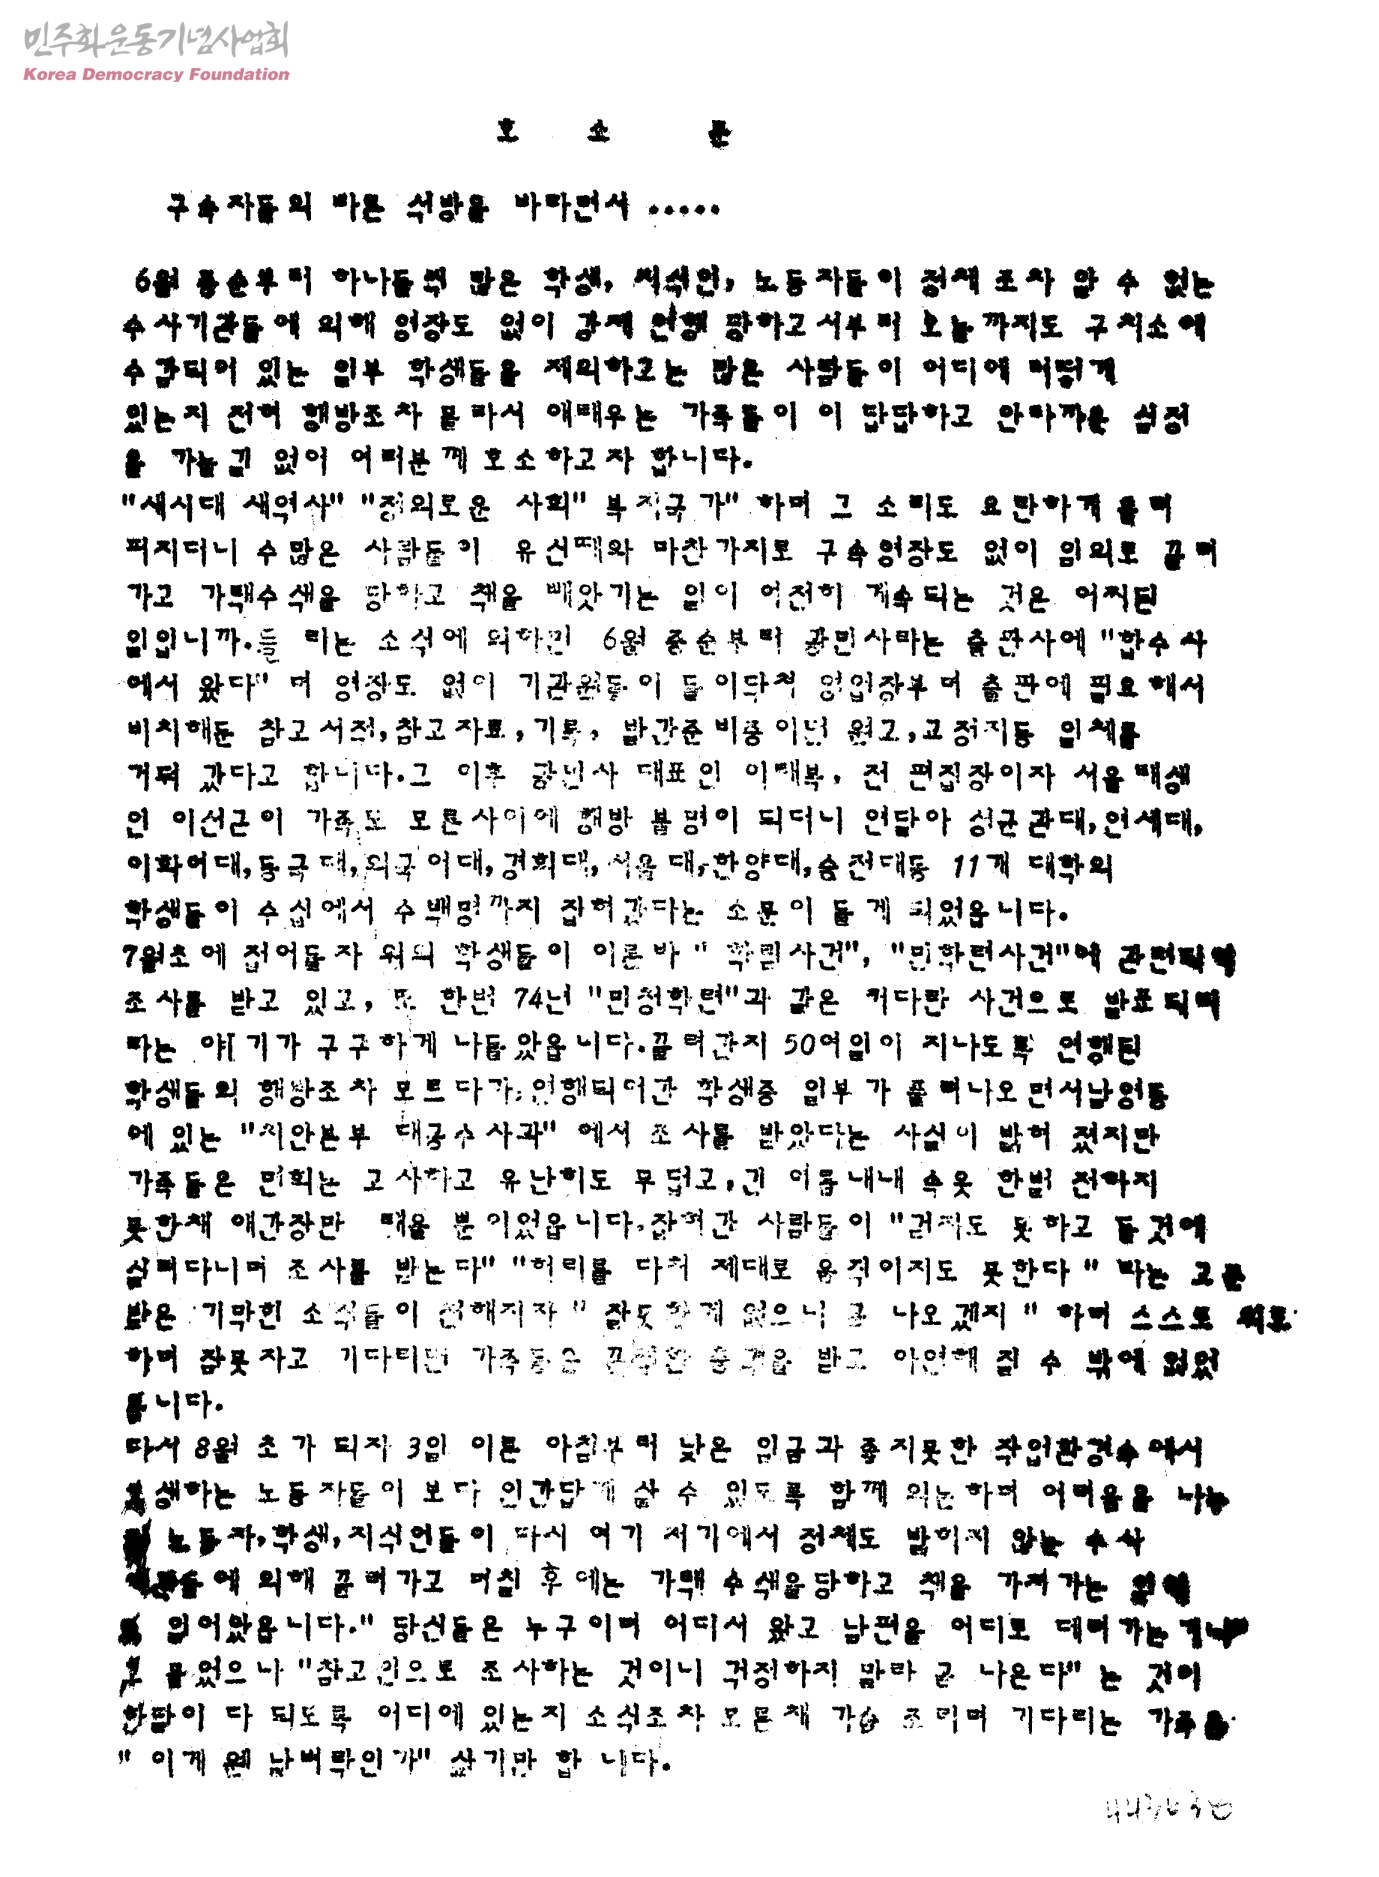 민주화운동기념사업회
Korea Democracy Foundation
호 소 문
구속자들의 빠른 석방을 바라면서 .....
6월 중순부터 하나둘씩 많은 학생, 지식인, 노동자들이 정체 조차 알 수 없는
수사기관들에 의해 영장도 없이 강제 연행 당하고서부터 오늘까지도 구치소에
수감되어 있는 일부 학생들을 제외하고는 많은 사람들이 어디에 어떻게
있는지 전혀 행방조차 몰라서 애태우는 가족들이 이 답답하고 안타까운 심정
을 가눌길 없어 여러분께 호소하고자 합니다.
"새시대 새역사" "정의로운 사회" 복지국가" 하며 그 소리도 요란하게 울려
퍼지더니 수많은 사람들이 유신때와 마찬가지로 구속영장도 없이 임의로 끌려
가고 가택수색을 당하고 책을 빼앗기는 일이 여전히 계속되는 것은 어찌된
일입니까.들 리는 소식에 의하면 6월 중순부터 광민사라는 출판사에 "합수사
에서 왔다" 며 영장도 없이 기관원들이 들이닥쳐 영업장부며 출판에 필요해서
비치해둔 참고서적,참고자료,기록, 발간준비중이던 원고,교정지등 일체를
거둬 갔다고 합니다.그 이후 광민사 대표인 이태복, 전 편집장이자 서울대생
인 이선근이 가족도 모른사이에 행방 불명이 되더니 연달아 성균관대,연세대,
이화여대,동국대,외국어대,경희대,서울대,한양대,숭전대등 11개 대학의
학생들이 수십에서 수백명까지 잡혀갔다는 소문이 들게 되었읍니다.
7월초에 접어들자 위의 학생들이 이른바 " 학림사건", "민학련사건"에 관련되어
조사를 받고 있고, 또 한번 74년 "민청학련"과 같은 커다란 사건으로 발표되리
라는 이야기가 구구하게 나돌았읍니다.끌려간지 50여일이 지나도록 연행된
학생들의 행방조차 모르다가,연행되어간 학생중 일부가 풀려나오면서남영동
에 있는 "치안본부 대공수사과" 에서 조사를 받았다는 사실이 밝혀 졌지만
가족들은 면회는 고사하고 유난히도 무덥고,긴 여름내내 속옷 한벌 전하지
못한채 애간장만 태울 뿐이었읍니다.잡혀간 사람들이 "걷지도 못하고 들것에
실려다니며 조사를 받는다" "허리를 다쳐 제대로 움직이지도 못한다 " 라는 고문
받은 기막힌 소식들이 전해지자 " 잘못한게 없으니 곧 나오겠지 " 하며 스스로 위로
하며 잠못자고 기다리던 가족들은 끔찍한 충격을 받고 아연해 질 수 밖에 없었
읍니다.
다시 8월 초가 되자 3일 이른 아침부터 낮은 임금과 좋지못한 작업환경속에서
고생하는 노동자들이 보다 인간답게 살 수 있도록 함께 의논하며 어려움을 나눈
노동자,학생,지식인들이 다시 여기 저기에서 정체도 밝히지 않는 수사
기관들에 의해 끌려가고 며칠 후에는 가택 수색을당하고 책을 가져가는
일어났읍니다." 당신들은 누구이며 어디서 왔고 남편을 어디로 데려가는 거냐"
고 물었으나 "참고인으로 조사하는 것이니 걱정하지 말라 곧 나온다" 는 것이
한달이 다 되도록 어디에 있는지 소식조차 모른채 가슴 조리며 기다리는 가족들은
" 이게 웬 날벼락인가" 싶기만 합 니다.